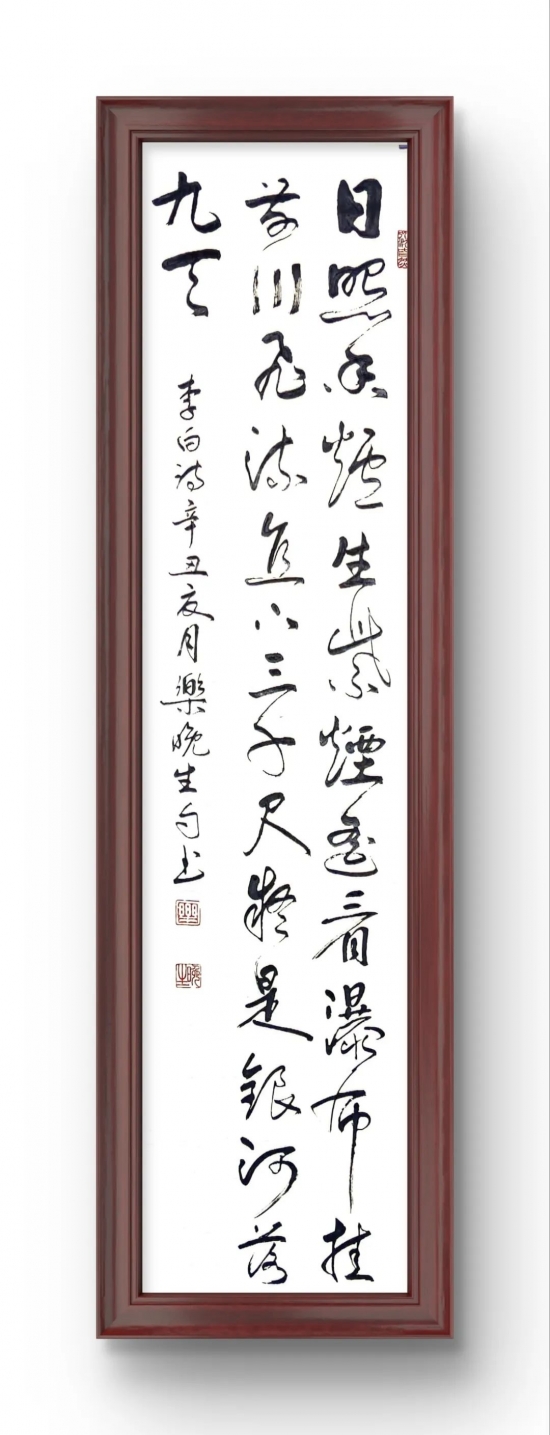 日照香爐生紫煙遙看瀑布掛
前川飛流直下三千尺疑是銀河落
九天
李白詩辛丑夏月樂晚生句書
樂
晚生